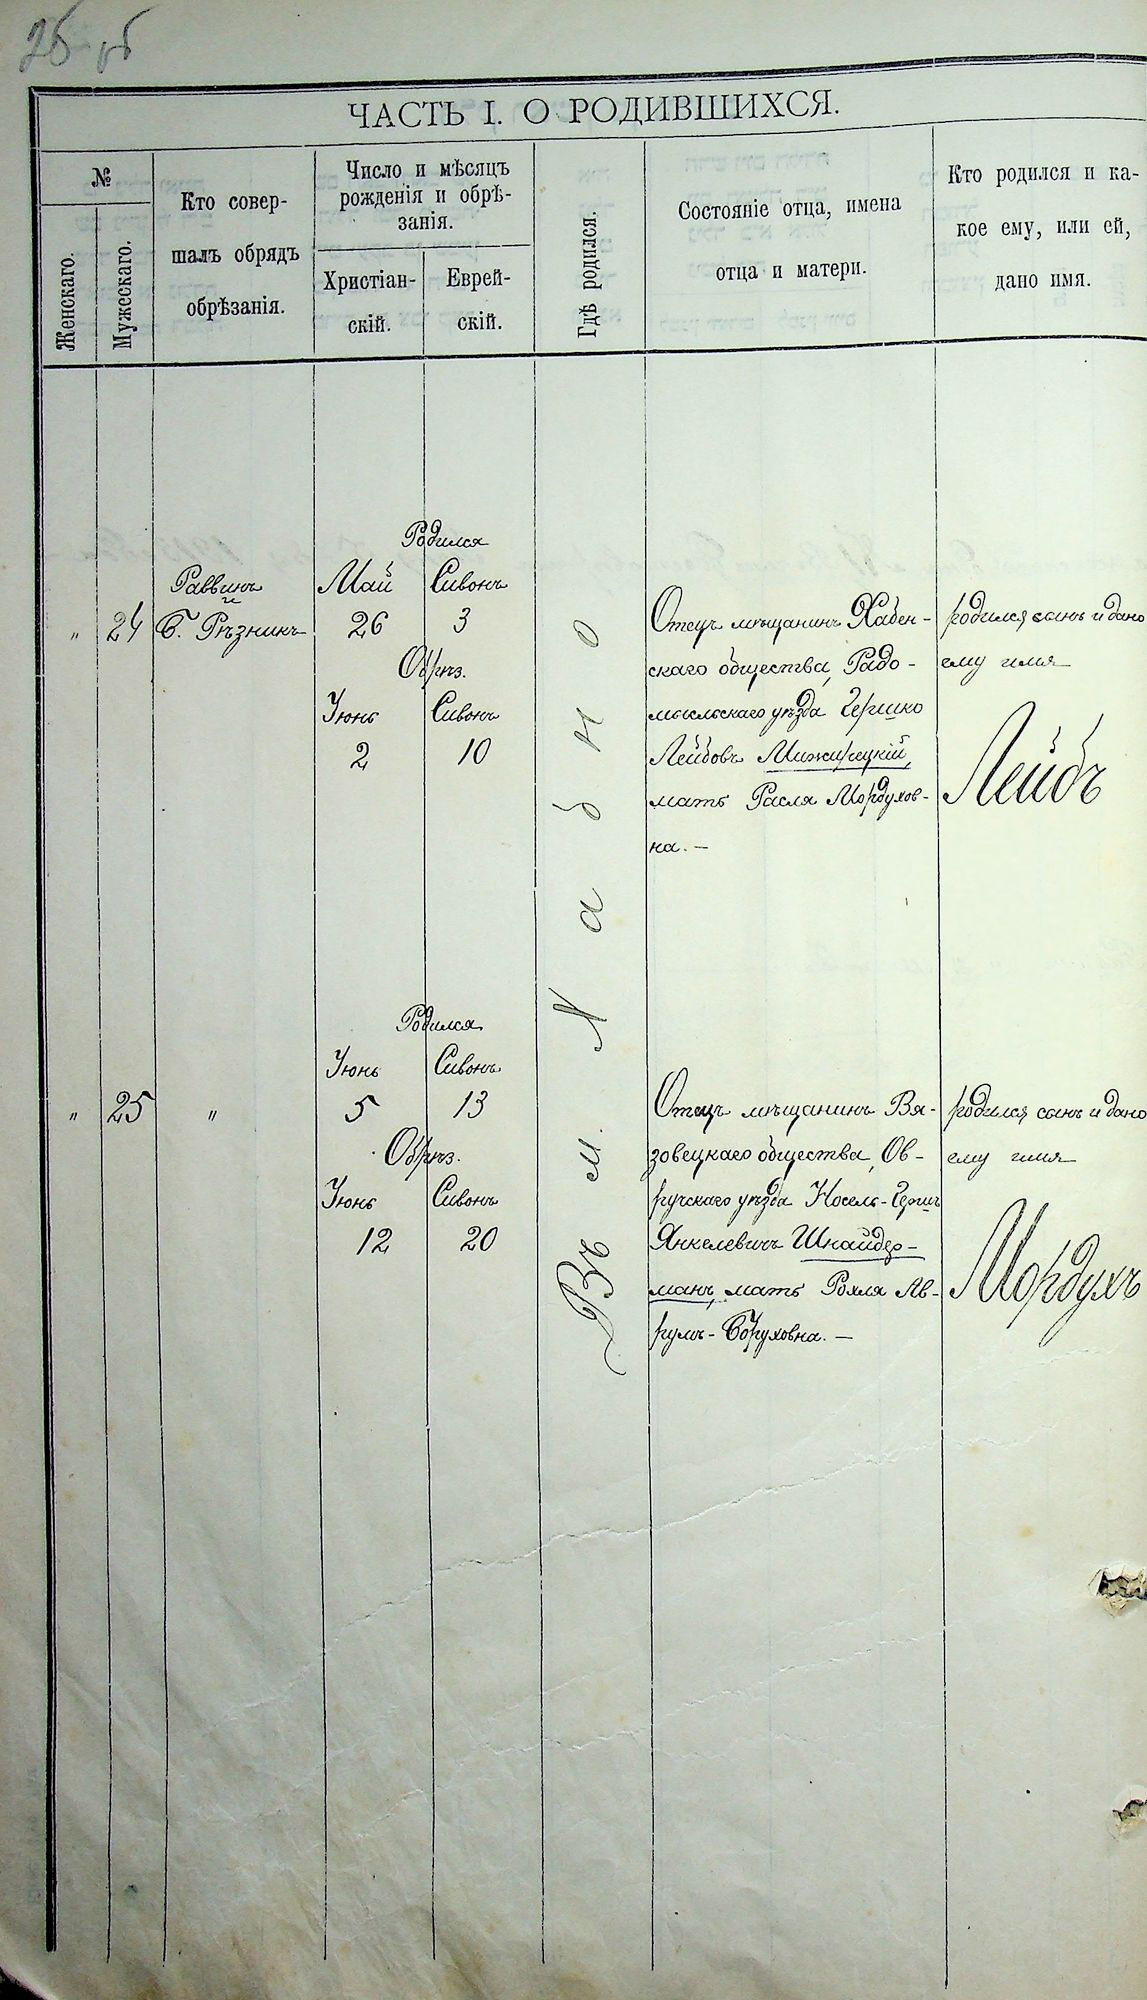 26 об
ЧАСТЬ I. О РОДИВШИХСЯ.
№
Женскаго.
Мужескаго.
Кто совер-
шалъ обрядъ
обрѣзанія.
Число и мѣсяцъ
рожденія и обрѣ-
занія.
Христіан-
скій.
Еврей-
скій.
Гдѣ родился.
Состояніе отца, имена
отца и матери.
Кто родился и ка-
кое ему, или ей,
дано имя.
Въ м. Хабно
" 24
Раввинъ
и
Б. Рѣзникъ
Родился
Май Сивонъ
26 3
Обрѣз.
Іюнь Сивонъ
2 10
Отецъ мѣщанинъ Хабен-
скаго общества, Радо-
мысльскаго уѣзда Гершко
Лейбовъ Мижирецкій,
мать Расля Мордухов-
на. —
родился сынъ и дано
ему имя
Лейбъ
" 25 "
Родился
Іюнь Сивонъ
5 13
Обрѣз.
Іюнь Сивонъ
12 20
Отецъ мѣщанинъ Вя-
зовецкаго общества, Ов-
ручскаго уѣзда Носель-Гершъ
Янкелевичъ Шнайдер-
манъ, мать Рохля Ав-
румъ-Боруховна. —
родился сынъ и дано
ему имя
Мордухъ